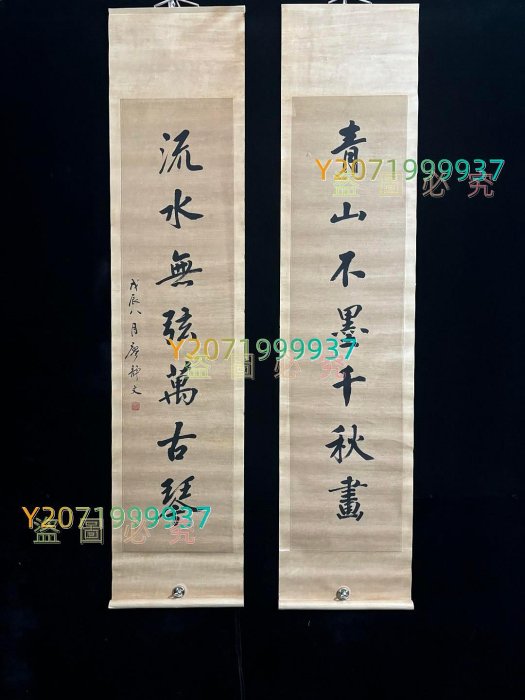 青山不墨千秋畫
流水無弦萬古琴
戊辰八月廖靜文
Y2071999937
盜圖必究
Y2071999937
盜圖必究
Y2071999937
盜圖必究